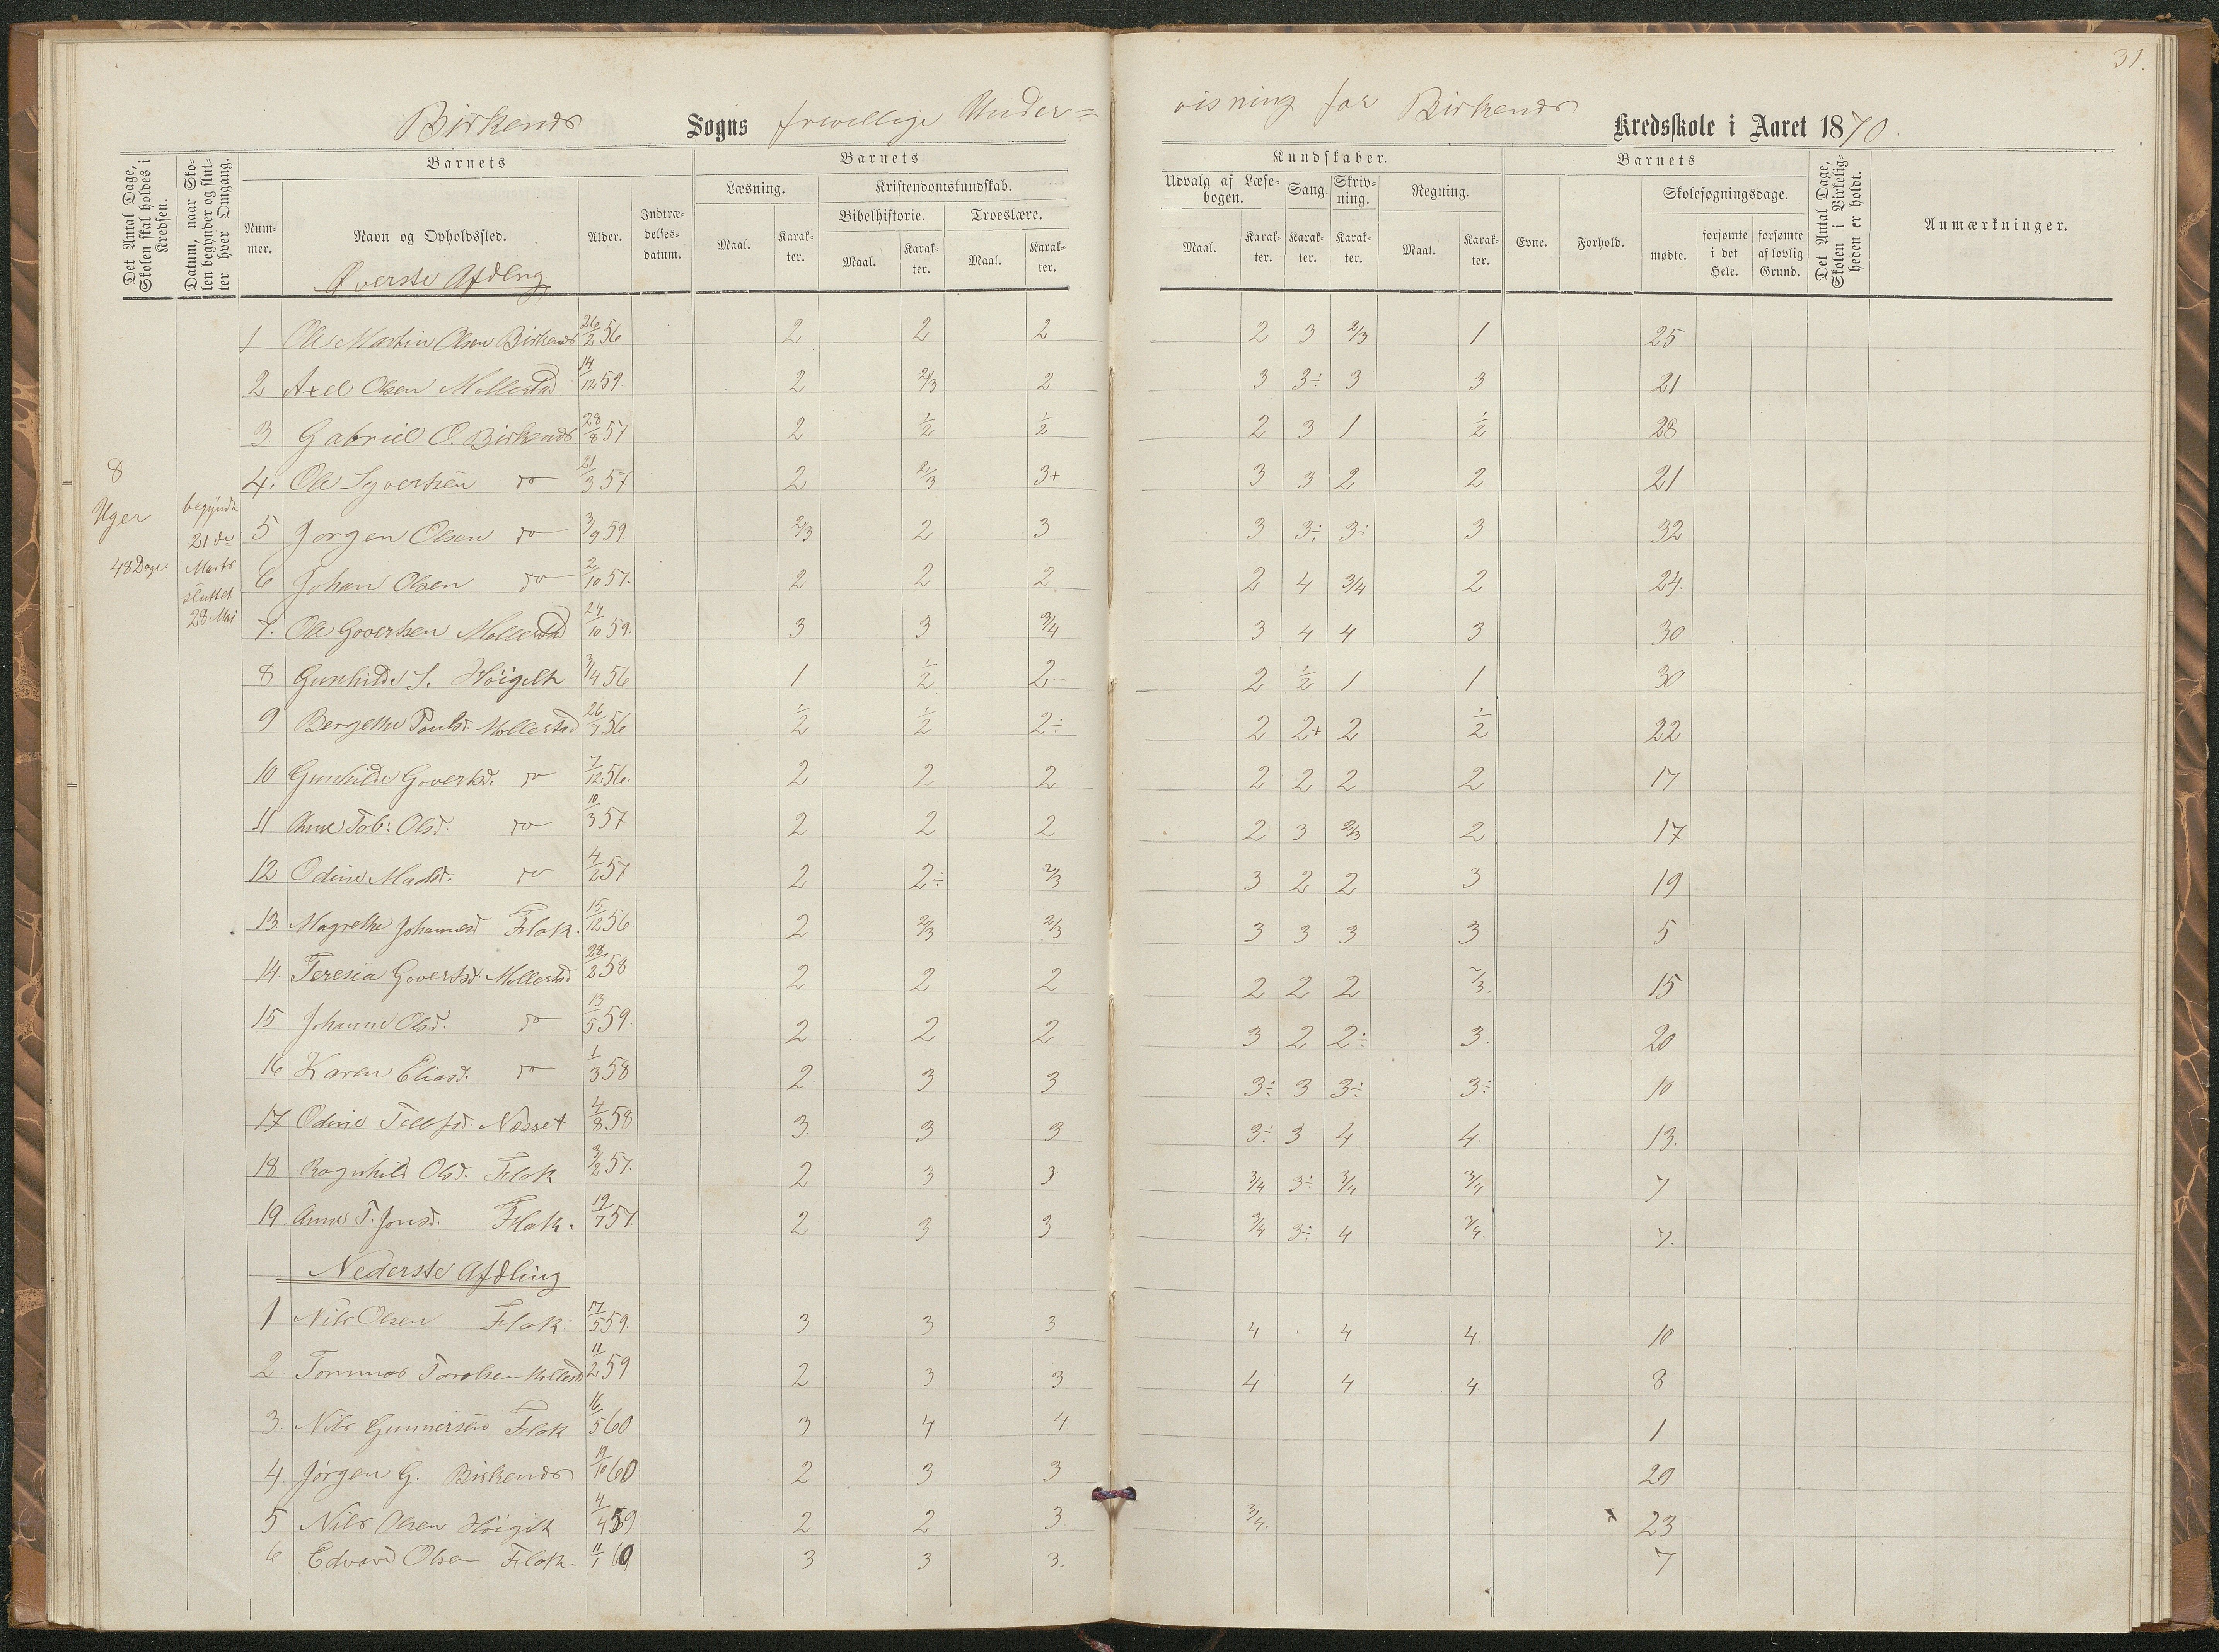 31.
Birkenes Sogns frivillige Under= visning for Birkenes Kredsskole i Aaret 1870.
Det Antal Dage, Skolen skal holdes i Kredsen.
Datum, naar Skolen begynder og slutter hver Omgang.
Barnets
Nummer.
Navn og Opholdssted.
Alder.
Indtrædelsesdatum.
Barnets
Læsning.
Maal.
Karakter.
Kristendomskundskab.
Bibelhistorie.
Maal.
Karakter.
Troeslære.
Maal.
Karakter.
Kundskaber.
Udvalg af Læsebogen.
Maal.
Karakter.
Sang.
Karakter.
Skrivning.
Karakter.
Regning.
Maal.
Karakter.
Barnets
Evne.
Forhold.
Skolesøgningsdage.
mødte.
forsømte i det Hele.
forsømte af lovlig Grund.
Det Antal Dage, Skolen i Virkeligheden er holdt.
Anmærkninger.
8 Uger 48 Dage
begyndt 21de Marts sluttet 28 Mai
Øverste Afdlng
1 Ole Martin Olsen Birkenes 26/2 56 2 2 2 2 3 2/3 1 25
2 Axel Olsen Mollestad 14/12 59 2 2/3 2 3 3÷ 3 3 21
3. Gabriel O. Birkenes 28/8 57 2 1/2 1/2 2 3 1 1/2 28
4. Ole Syvertsen do 21/3 57 2 2/3 3+ 3 3 2 2 21
5 Jorgen Olsen do 3/9 59 2/3 2 3 3 3÷ 3÷ 3 32
6 Johan Olsen do 2/10 57. 2 2 2 2 4 3/4 2 24.
7. Ole Govertsen Mollestad 24/10 59. 3 3 3/4 3 4 4 3 30
8 Gunhilde S. Höigilt 3/4 56 1 1/2 2- 2 1/2 1 1 30
9 Bergethe Poulsd. Mollestad 26/7 56 1/2 1/2 2÷ 2 2+ 2 1/2 22
10 Gunhilde Govertsd. do 7/12 56. 2 2 2 2 2 2 2 17
11 Anne Tob: Olsd. do 10/3 57 2 2 2 2 3 2/3 2 17
12 Odine Madsd. do 4/2 57 2 2÷ 2/3 3 2 2 3 19
13. Magrethe Johannesd Flak. 15/12 56. 2 2/3 2/3 3 3 3 3 5
14. Teresia Govertsd Mollestad 28/2 58 2 2 2 2 2 2 2/3. 15
15 Johanne Olsd. do 13/5 59. 2 2 2 3 2 2÷ 3. 20
16 Karen Eliasd. do 1/3 58 2 3 3 3÷ 3 3÷ 3÷ 10
17 Odine Tellefsd. Næsset 4/8 58 3 3 3 3÷ 3 4 4. 13.
18 Ragnhild Olsd. Flak 3/2 57. 2 3 3 3/4 3÷ 3/4 3/4 7
19. Anne T. Jonsd. Flak. 19/7 57. 2 3 3 3/4 3÷ 4 3/4. 7.
Nederste Afdling
1 Nils Olsen Flak. 17/5 59. 3 3 3 4 4 4. 10
2 Tommas Tarolsen Mollestd 11/2 59 2 3 3 4 4 4 8
3. Nils Gunnersen Flak 16/5 60 3 4 4. 1
4. Jörgen G. Birkenes 19/10 60 2 3 3 20
5 Nils Olsen Höigilt 4/4 59 2 2 3. 3/4. 23
6 Edvard Olsen Flak. 11/1 60 3 3 3. 7